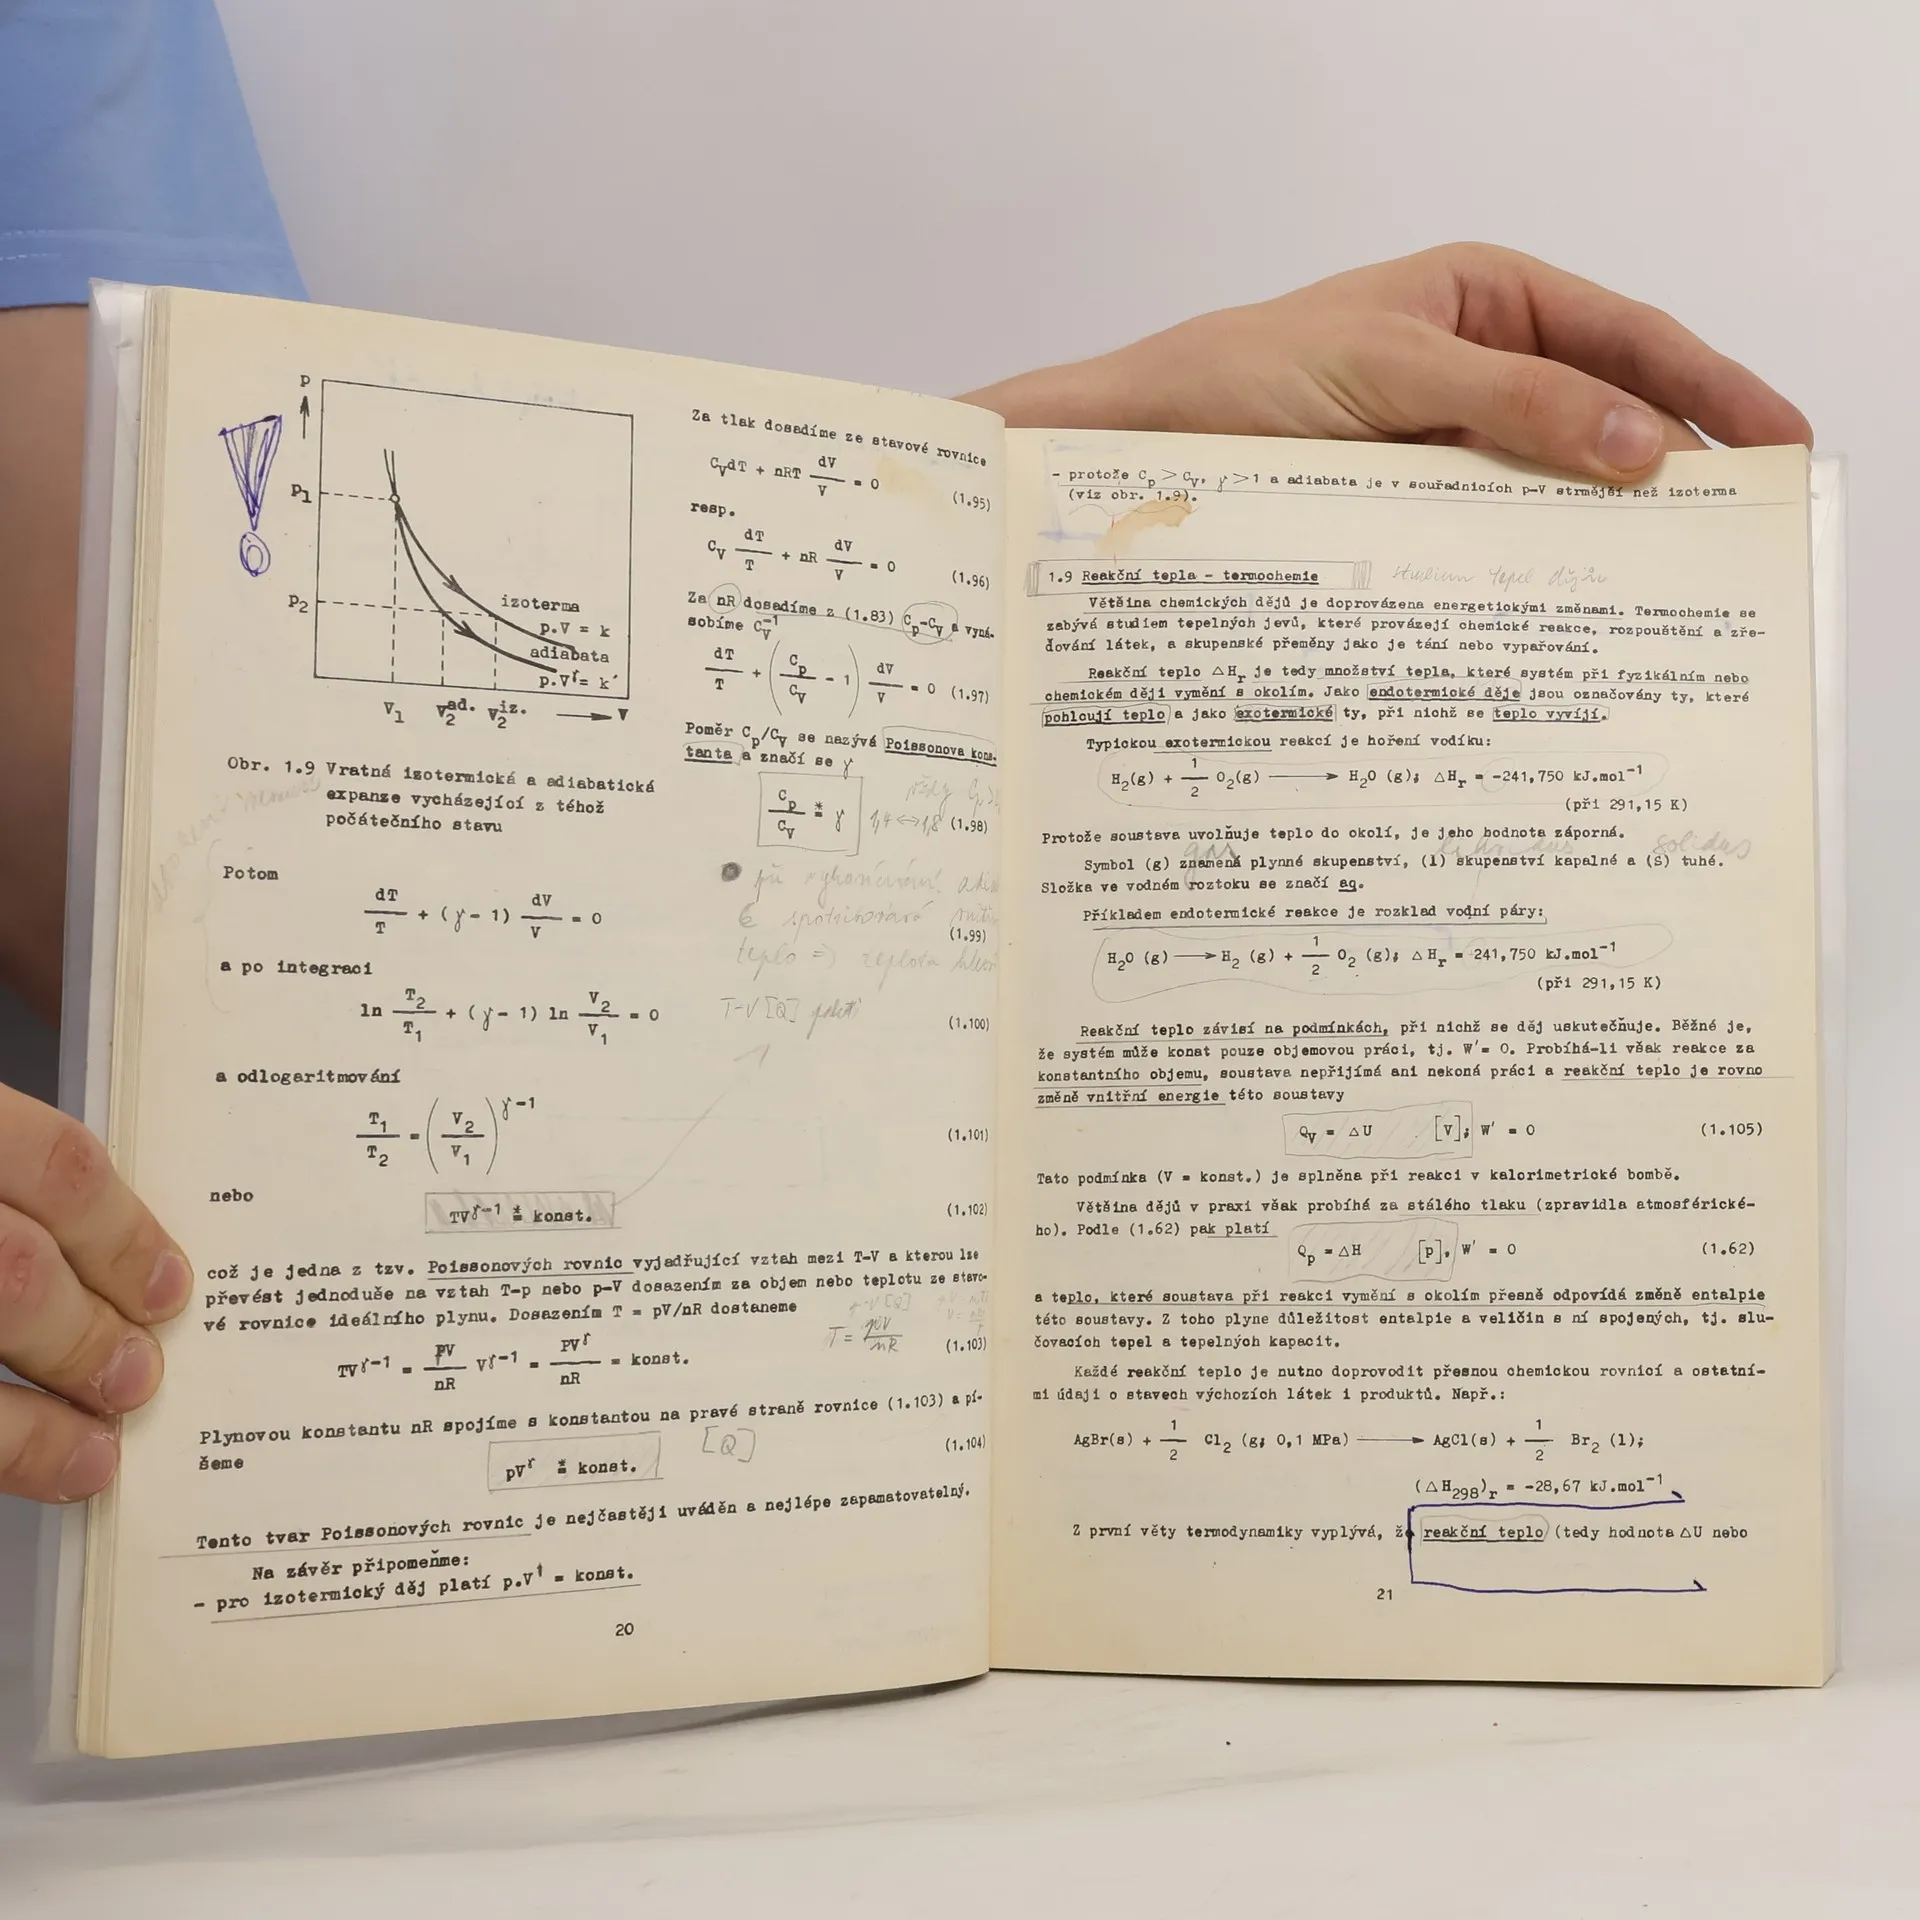 p
P₁
P₂
izoterma
p.V = k
adiabata
p.Vᵞ= k´
V₁ V₂ad. V₂iz. ⟶ V
Obr. 1.9 Vratná izotermická a adiabatická
expanze vycházející z téhož
počátečního stavu
Za tlak dosadíme ze stavové rovnice
C_V dT + nRT dV/V = 0 (1.95)
resp.
C_V dT/T + nR dV/V = 0 (1.96)
Za nR dosadíme z (1.83) C_p-C_V a vyná-
sobíme C_V⁻¹
dT/T + (C_p/C_V - 1) dV/V = 0 (1.97)
Poměr C_p/C_V se nazývá Poissonova kons-
tanta a značí se γ
C_p/C_V ≛ γ
1,4 ↔ 1,8 (1.98)
Potom
dT/T + (γ- 1) dV/V = 0 (1.99)
teplo ⇒ teplota
a po integraci
ln T₂/T₁ + (γ- 1) ln V₂/V₁ = 0 (1.100)
T-V [Q] platí
a odlogaritmování
T₁/T₂ = (V₂/V₁)ᵞ⁻¹ (1.101)
nebo
TVᵞ⁻¹ ≛ konst. (1.102)
což je jedna z tzv. Poissonových rovnic vyjadřující vztah mezi T-V a kterou lze
převést jednoduše na vztah T-p nebo p-V dosazením za objem nebo teplotu ze stavo-
vé rovnice ideálního plynu. Dosazením T = pV/nR dostaneme
T = pV/nR
TVᵞ⁻¹ = pV/nR Vᵞ⁻¹ = PVᵞ/nR = konst. (1.103)
Plynovou konstantu nR spojíme s konstantou na pravé straně rovnice (1.103) a pí-
šeme
pVᵞ ≛ konst. [Q] (1.104)
Tento tvar Poissonových rovnic je nejčastěji uváděn a nejlépe zapamatovatelný.
Na závěr připomeňme:
- pro izotermický děj platí p.V¹ = konst.
20
- protože C_p > C_V, γ >1 a adiabata je v souřadnicích p-V strmější než izoterma
(viz obr. 1.9).
1.9 Reakční tepla - termochemie studium tepel dějů
Většina chemických dějů je doprovázena energetickými změnami. Termochemie se
zabývá studiem tepelných jevů, které provázejí chemické reakce, rozpouštění a zře-
ďování látek, a skupenské přeměny jako je tání nebo vypařování.
Reakční teplo ΔH_r je tedy množství tepla, které systém při fyzikálním nebo
chemickém ději vymění s okolím. Jako endotermické děje jsou označovány ty, které
pohlcují teplo a jako exotermické ty, při nichž se teplo vyvíjí.
Typickou exotermickou reakcí je hoření vodíku:
H₂(g) + 1/2 O₂(g) ⟶ H₂O (g); ΔH_r = -241,750 kJ.mol⁻¹
(při 291,15 K)
Protože soustava uvolňuje teplo do okolí, je jeho hodnota záporná.
gas solidus
Symbol (g) znamená plynné skupenství, (l) skupenství kapalné a (S) tuhé.
Složka ve vodném roztoku se značí aq.
Příkladem endotermické reakce je rozklad vodní páry:
H₂O (g) ⟶ H₂ (g) + 1/2 O₂ (g); ΔH_r = 241,750 kJ.mol⁻¹
(při 291,15 K)
Reakční teplo závisí na podmínkách, při nichž se děj uskutečňuje. Běžné je,
že systém může konat pouze objemovou práci, tj. W′= 0. Probíhá-li však reakce za
konstantního objemu, soustava nepřijímá ani nekoná práci a reakční teplo je rovno
změně vnitřní energie této soustavy
Q_V = ΔU [V]; W′ = 0 (1.105)
Tato podmínka (V = konst.) je splněna při reakci v kalorimetrické bombě.
Většina dějů v praxi však probíhá za stálého tlaku (zpravidla atmosférické-
ho). Podle (1.62) pak platí
Q_p = ΔH [p], W′ = 0 (1.62)
a teplo, které soustava při reakci vymění s okolím přesně odpovídá změně entalpie
této soustavy. Z toho plyne důležitost entalpie a veličin s ní spojených, tj. slu-
čovacích tepel a tepelných kapacit.
Každé reakční teplo je nutno doprovodit přesnou chemickou rovnicí a ostatní-
mi údaji o stavech výchozích látek i produktů. Např.:
AgBr(s) + 1/2 Cl₂ (g; 0,1 MPa) ⟶ AgCl(s) + 1/2 Br₂ (l);
(ΔH₂₉₈)_r = -28,67 kJ.mol⁻¹
Z první věty termodynamiky vyplývá, že reakční teplo (tedy hodnota ΔU nebo
21